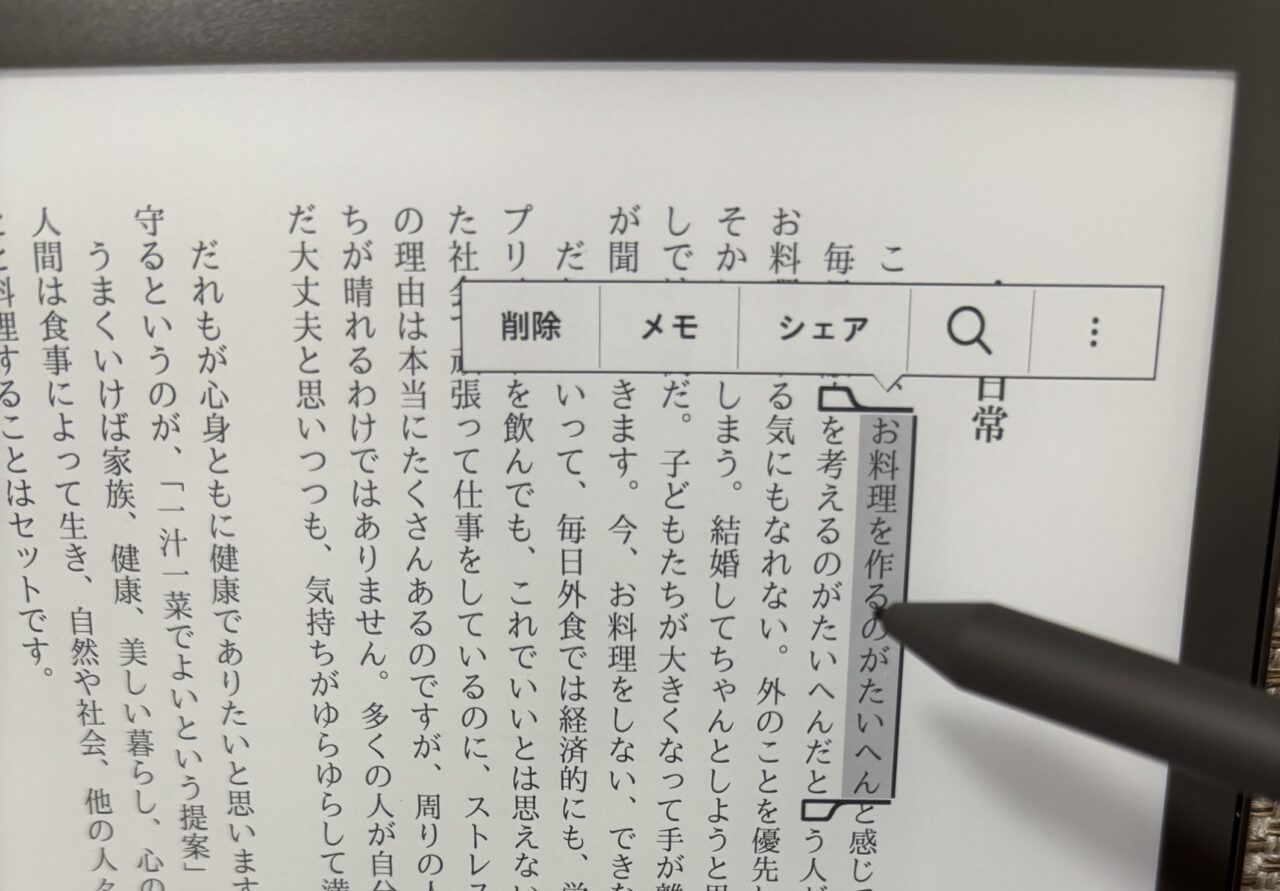 削除 メモ シェア
日常
こ お料理を作るのがたいへんと感じて
毎 を考えるのがたいへんだと う人が
お料 る気にもなれない。外のことを優先
そか しまう。結婚してちゃんとしようと思
しで だ。子どもたちが大きくなって手が離
が聞 きます。今、お料理をしない、できな
だ いって、毎日外食では経済的にも、
プリ を飲んでも、これでいいとは思えない
た社会 頑張って仕事をしているのに、ストレス
の理由は本当にたくさんあるのですが、周りの人
ちが晴れるわけではありません。多くの人が自分
だ大丈夫と思いつつも、気持ちがゆらゆらして満
だれもが心身ともに健康でありたいと思います
守るというのが、「一汁一菜でよいという提案」
うまくいけば家族、健康、美しい暮らし、心の
人間は食事によって生き、自然や社会、他の人々
と料理することはセットです。